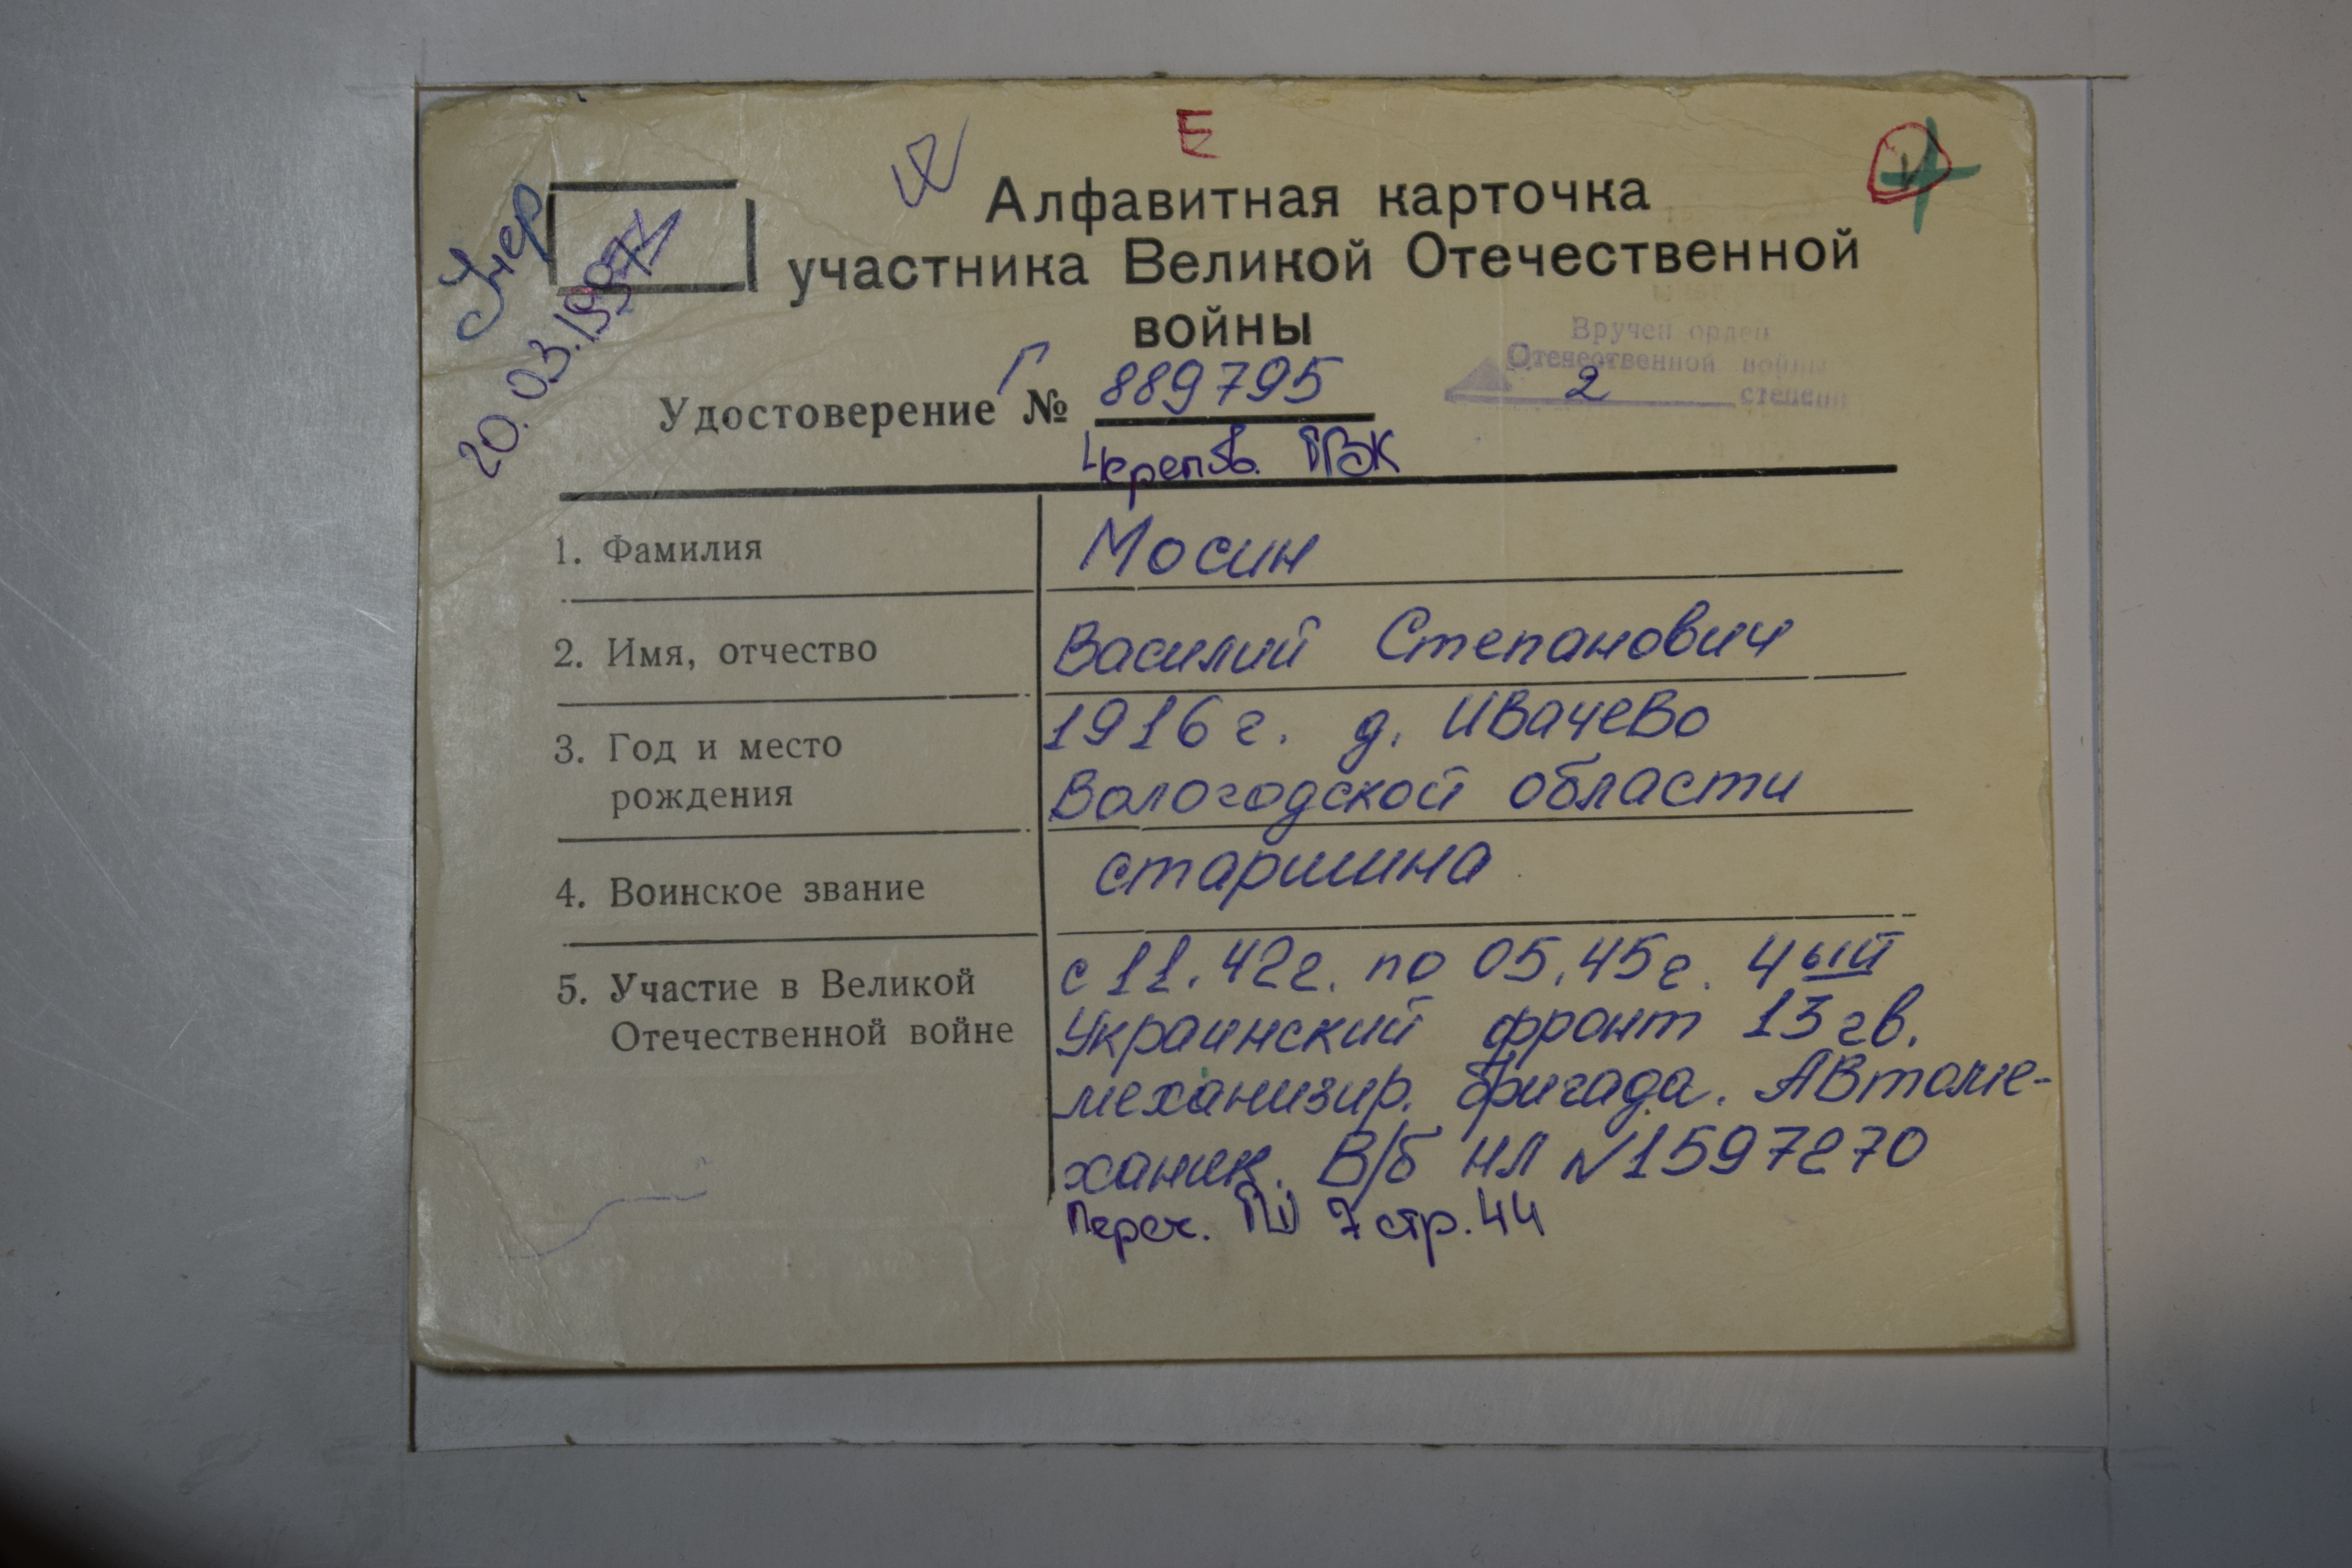 Е
Алфавитная карточка
участника Великой Отечественной
войны
Умер
20.03.1997г
Вручен орден
Отечественной войны
2 степени
Удостоверение Г № 889795
Черепов. ГВК
1. Фамилия Мосин
2. Имя, отчество Василий Степанович
3. Год и место 1916 г. д. Ивачево
рождения Вологодской области
4. Воинское звание старшина
5. Участие в Великой с 11.42г. по 05.45г. 4ый
Отечественной войне Украинский фронт 13 гв.
механизир. бригада. Автоме-
ханик. В/б НЛ №1597270
7 стр. 44